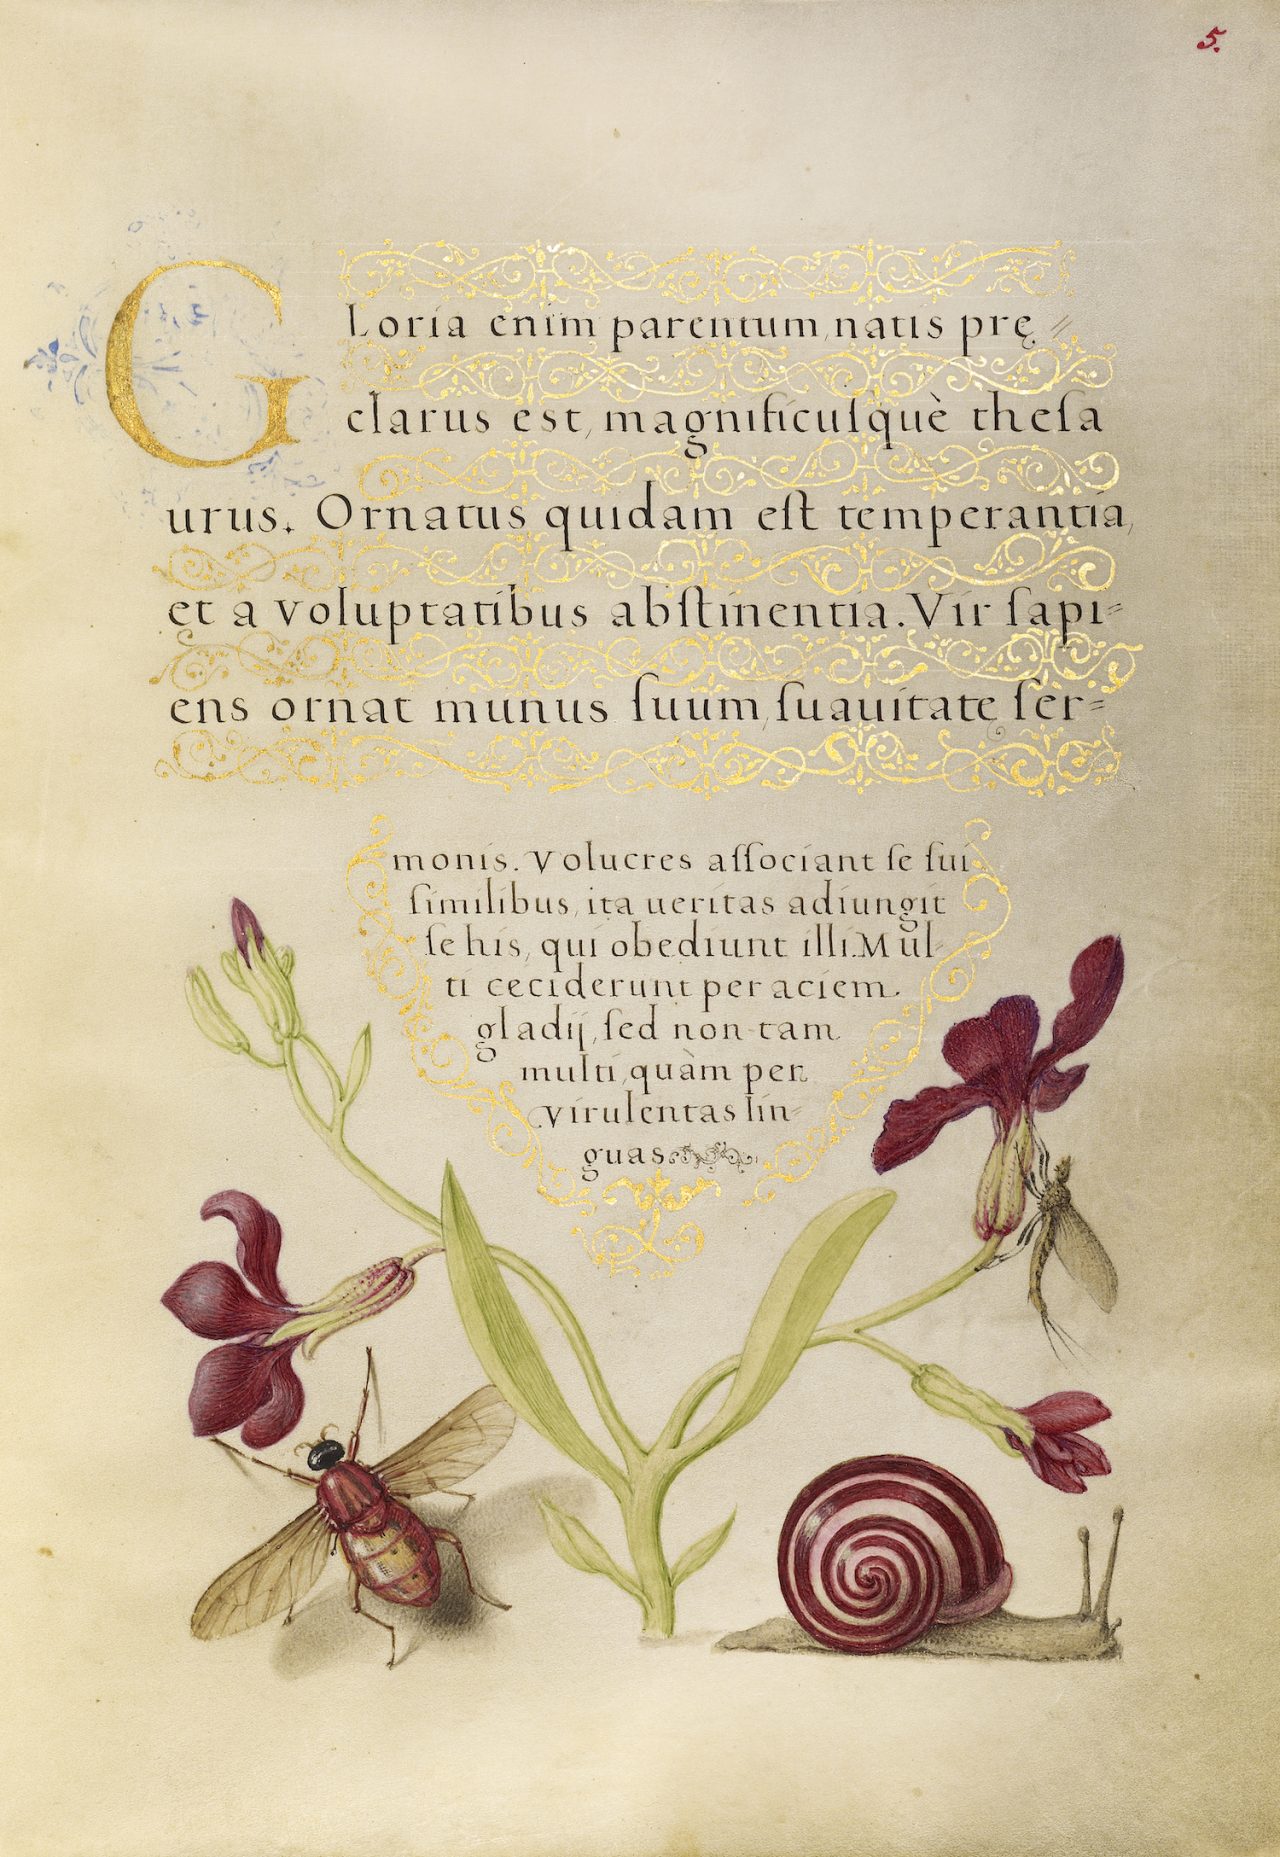 5.
Gloria enim parentum, natis prę=
clarus est, magnificuſquè theſa
urus. Ornatus quidam eſt temperantia,
et a voluptatibus abſtinentia. Vir ſapi=
ens ornat munus ſuum, ſuauitate ſer=
monis. Volucres aſſociant ſe ſui
ſimilibus, ita ueritas adiungit
ſe his, qui obediunt illi. Mul-
ti ceciderunt per aciem
gladij, ſed non tam
multi, quàm per
virulentas lin=
guas